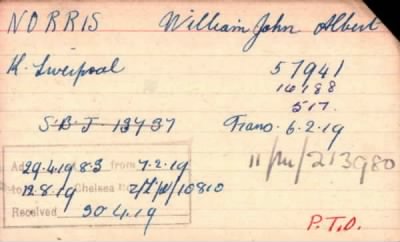 NORRIS William John Albert
K. Liverpool 57941
14188
517.
S.B.J. 13737 Trans. 6.2.19
29.4.1983 from 7.2.19 11/M/213980
12.8.19 Chelsea 2/L/10810
Received 30.4.19
P.T.O.